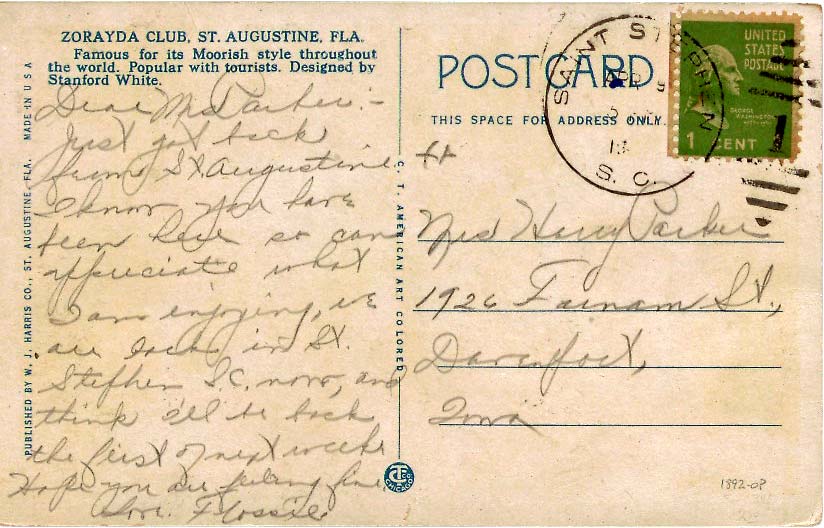 ZORAYDA CLUB, ST. AUGUSTINE, FLA.
Famous for its Moorish style throughout
the world. Popular with tourists. Designed by
Stanford White.
Dear Mrs Parker:-
Just got back
from St Augustine
I know you have
been here so can
appreciate what
I am enjoying, we
are back in St.
Stephen S.C. now, and
think I'll be back
the first of next week.
Hope you are feeling fine
Love. Flossie
PUBLISHED BY W. J. HARRIS CO., ST. AUGUSTINE, FLA. MADE IN U S A
C. T. AMERICAN ART COLORED
CHICAGO
POST CARD
THIS SPACE FOR ADDRESS ONLY.
SAINT STEPHEN
APR 9
S. C.
UNITED
STATES
POSTAGE
GEORGE
WASHINGTON
1 CENT
1
Mrs Harry Parker
1926 Farnam St.,
Davenport,
Iowa
1892-08